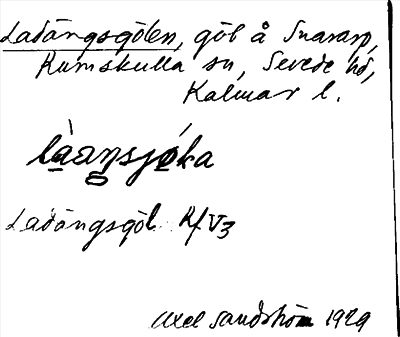 Ladängsgölen, göl å Snararp,
Rumskulla sn, Sevede hd,
Kalmar l.
làaŋsjǿka
Ladängsgöl R/V3
Axel Sandström 1929